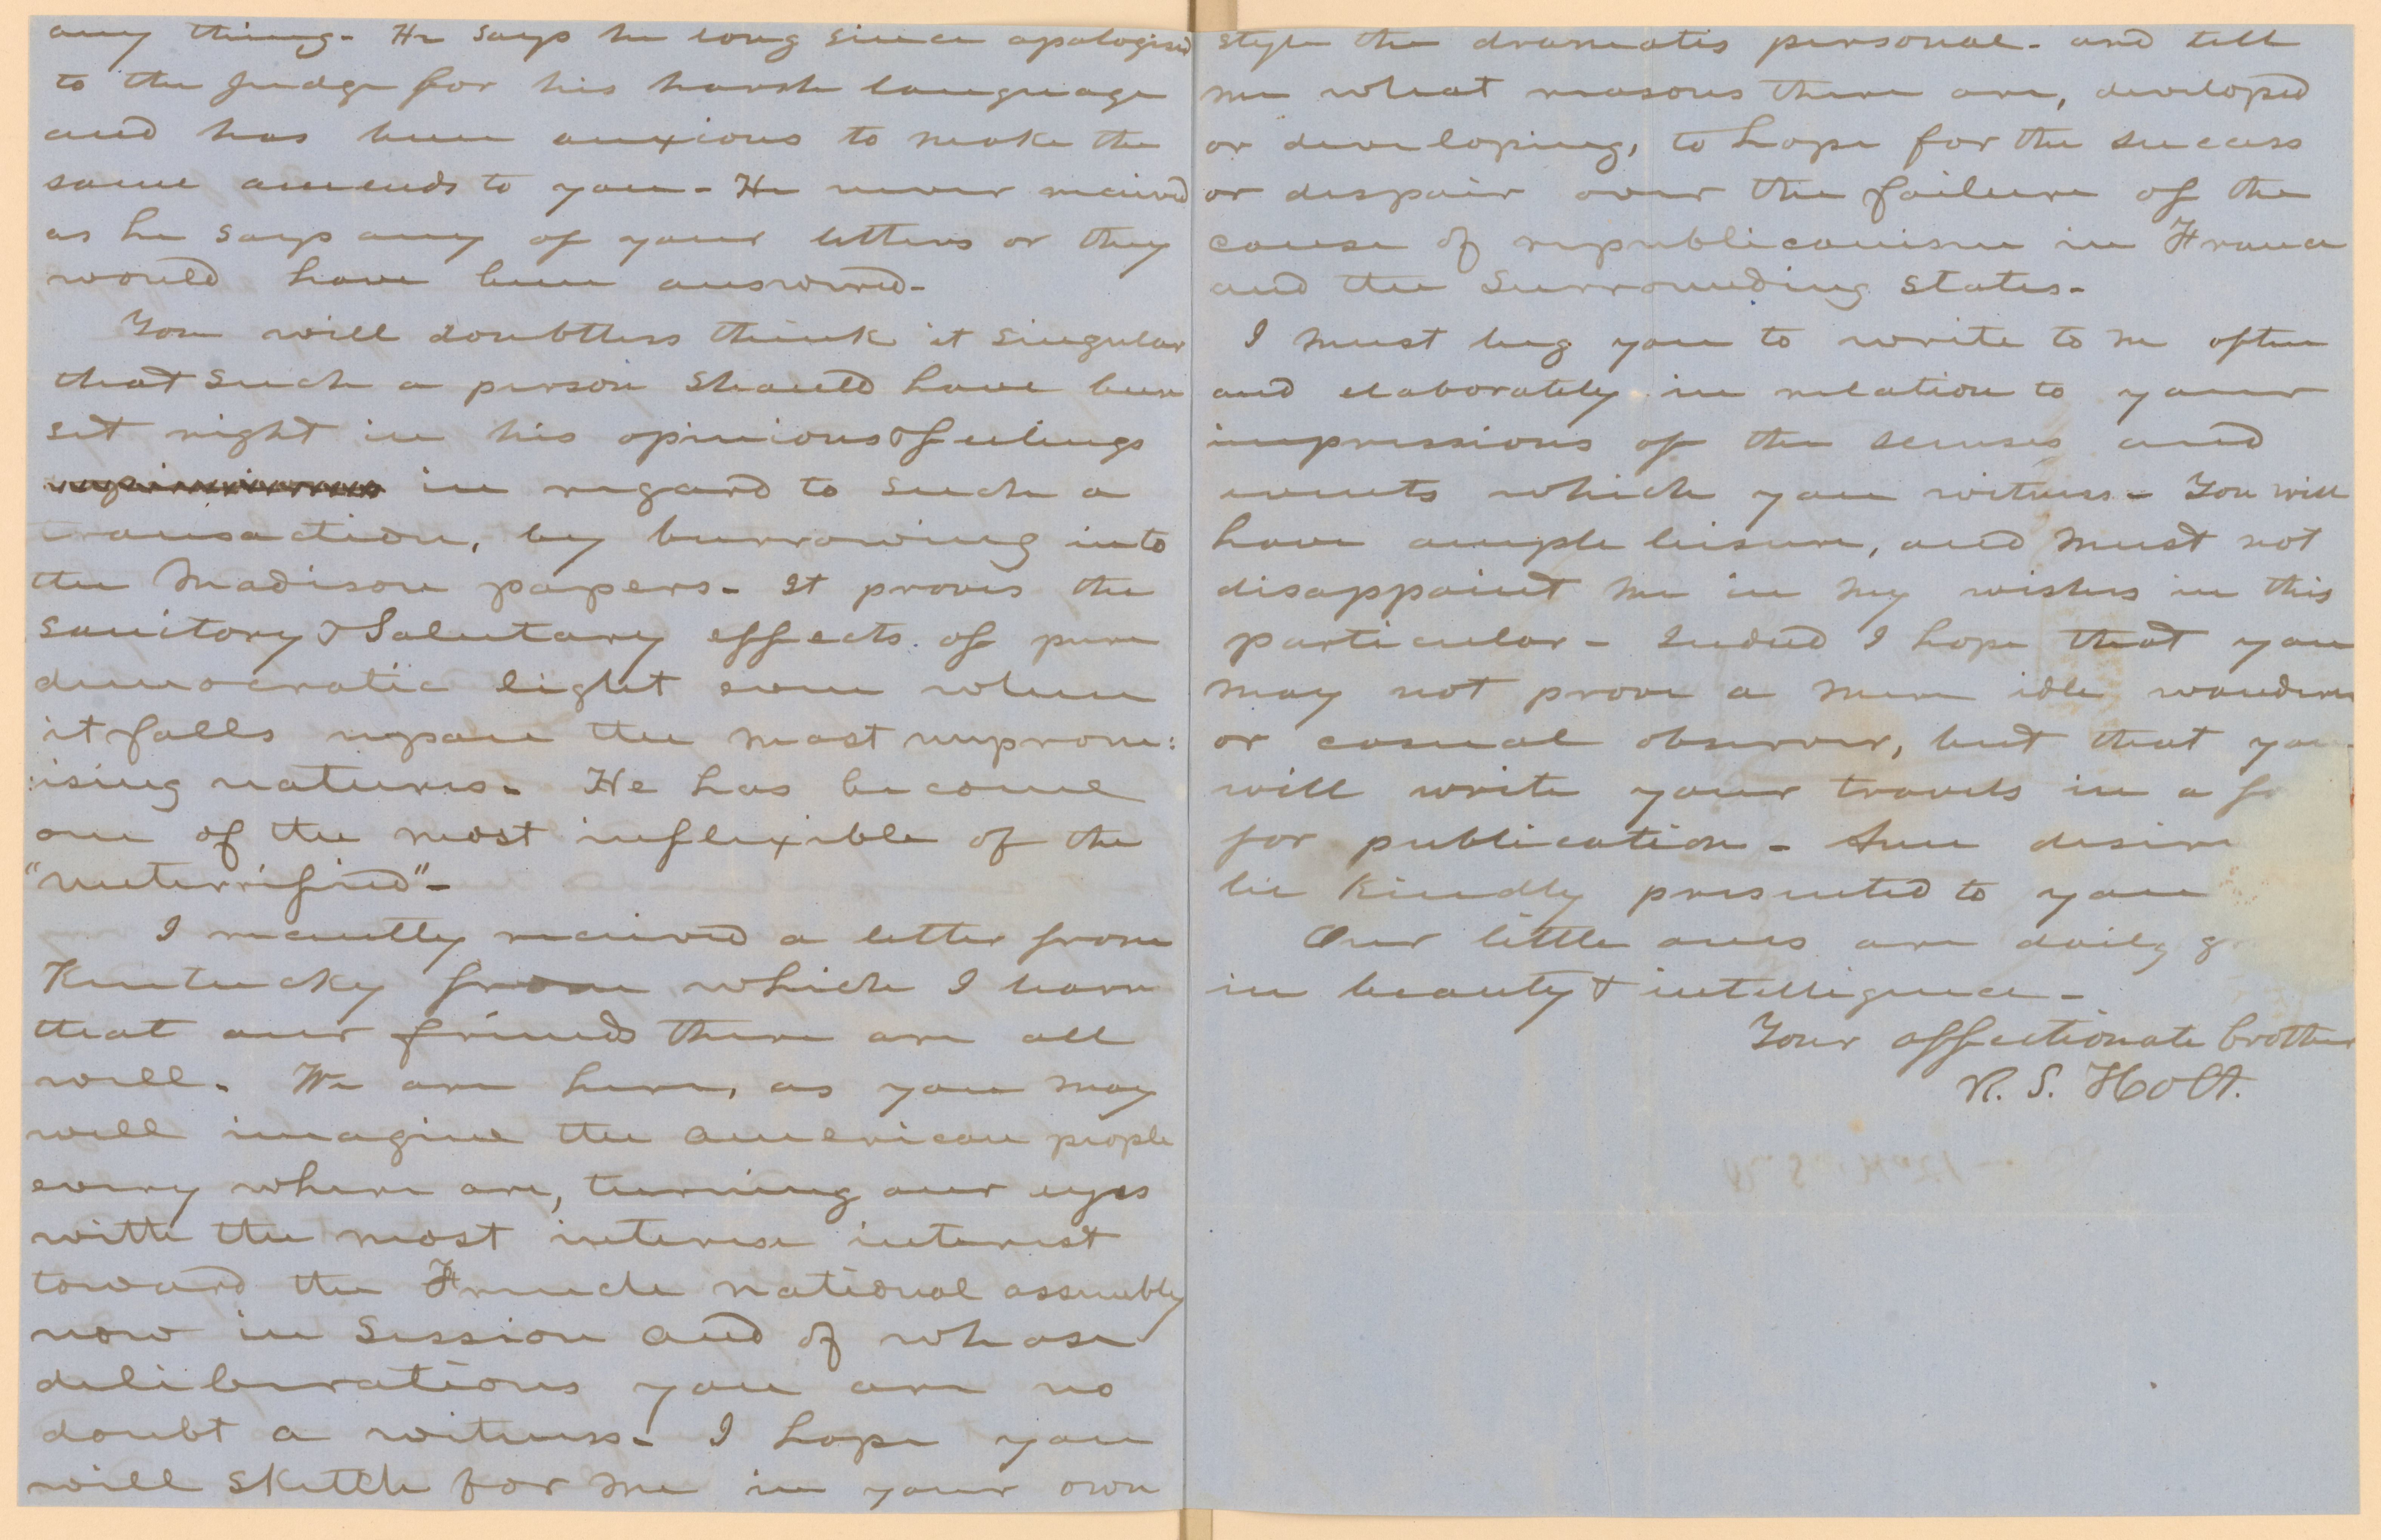 any thing- He says he long since apologised
to the Judge for his harsh language
and has been anxious to make the
same amends to you- He never received
as he says any of your letters or they
would have been answered-
You will doubtless think it singular
that such a person should have been
set right in his opinions & feelings
in regard to such a
transaction, by burrowing into
the Madison papers- It proves the
sanitory & Salutary effects of pure
democratic light even when
it falls upon the most unprom:
:ising natures- He has become
one of the most inflexible of the
"unterrified"-
I recently received a letter from
Kentucky from which I learn
that our friends there are all
well. We are here, as you may
well imagine the American people
every where are, turning our eyes
with the most intense interest
toward the French national assembly
now in Session and of whose
deliberations you are no
doubt a witness- I hope you
will sketch for me in your own
style the dramatis personae- and tell
me what reasons there are, developed
or developing, to hope for the success
or despair over the failure of the
cause of republicanism in France
and the Surrounding States-
I must beg you to write to me often
and elaborately in relation to your
impressions of the scenes and
events which you witness- You will
have ample leisure, and must not
disappoint me in my wishes in this
particular- Indeed I hope that you
may not prove a mere idle wanderer
or casual observer, but that you
will write your travels in a
for publication- Ann desires
be kindly presented to you
Our little ones are daily
in beauty & intelligence-
Your affectionate brother
R. S. Holt.